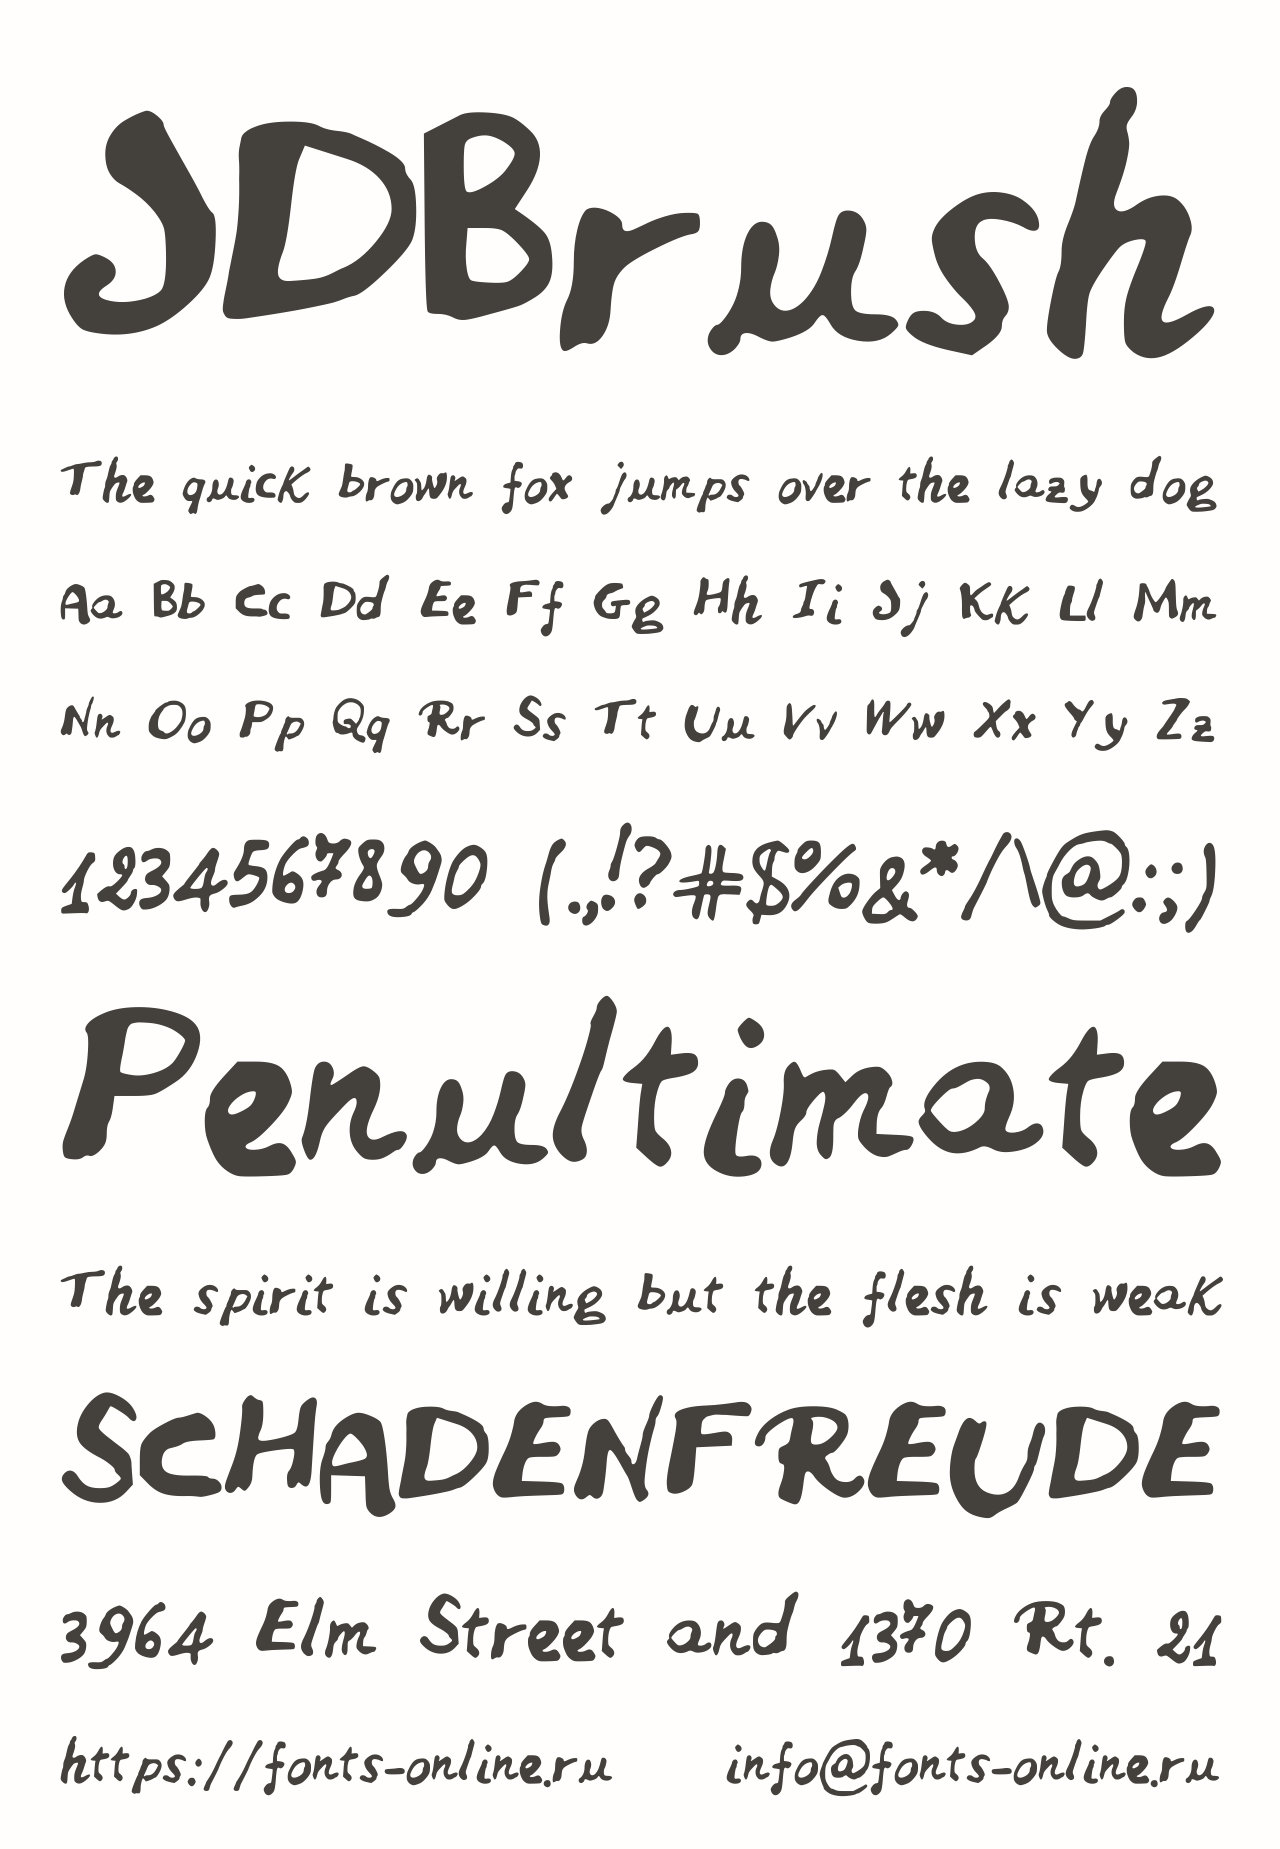 JDBrush
The quick brown fox jumps over the lazy dog
Aa Bb Cc Dd Ee Ff Gg Hh Ii Jj Kk Ll Mm
Nn Oo Pp Qq Rr Ss Tt Uu Vv Ww Xx Yy Zz
1234567890 (.,!?#$%&*/\@:;)
Penultimate
The spirit is willing but the flesh is weak
SCHADENFREUDE
3964 Elm Street and 1370 Rt. 21
https://fonts-online.ru info@fonts-online.ru